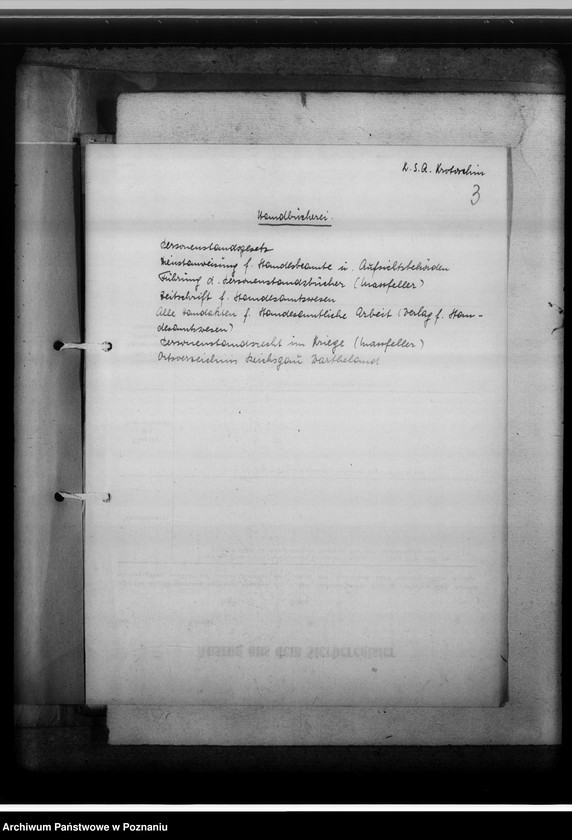 K. S. A. Krotoschin
3
Handbücherei.
Personenstandsgesetz
Dienstanweisung f. Standesbeamte u. Aufsichtsbehörden
Führung d. Personenstandsbücher (Massfeller)
Zeitschrift f. Standesamtswesen
Alle Handakten f. Standesamtliche Arbeit (Verlag f. Stan-
desamtswesen)
Personenstandsrecht im Kriege (Massfeller)
Ortsverzeichnis Reichsgau Wartheland
Auszug aus dem Sterberegister
Archiwum Państwowe w Poznaniu